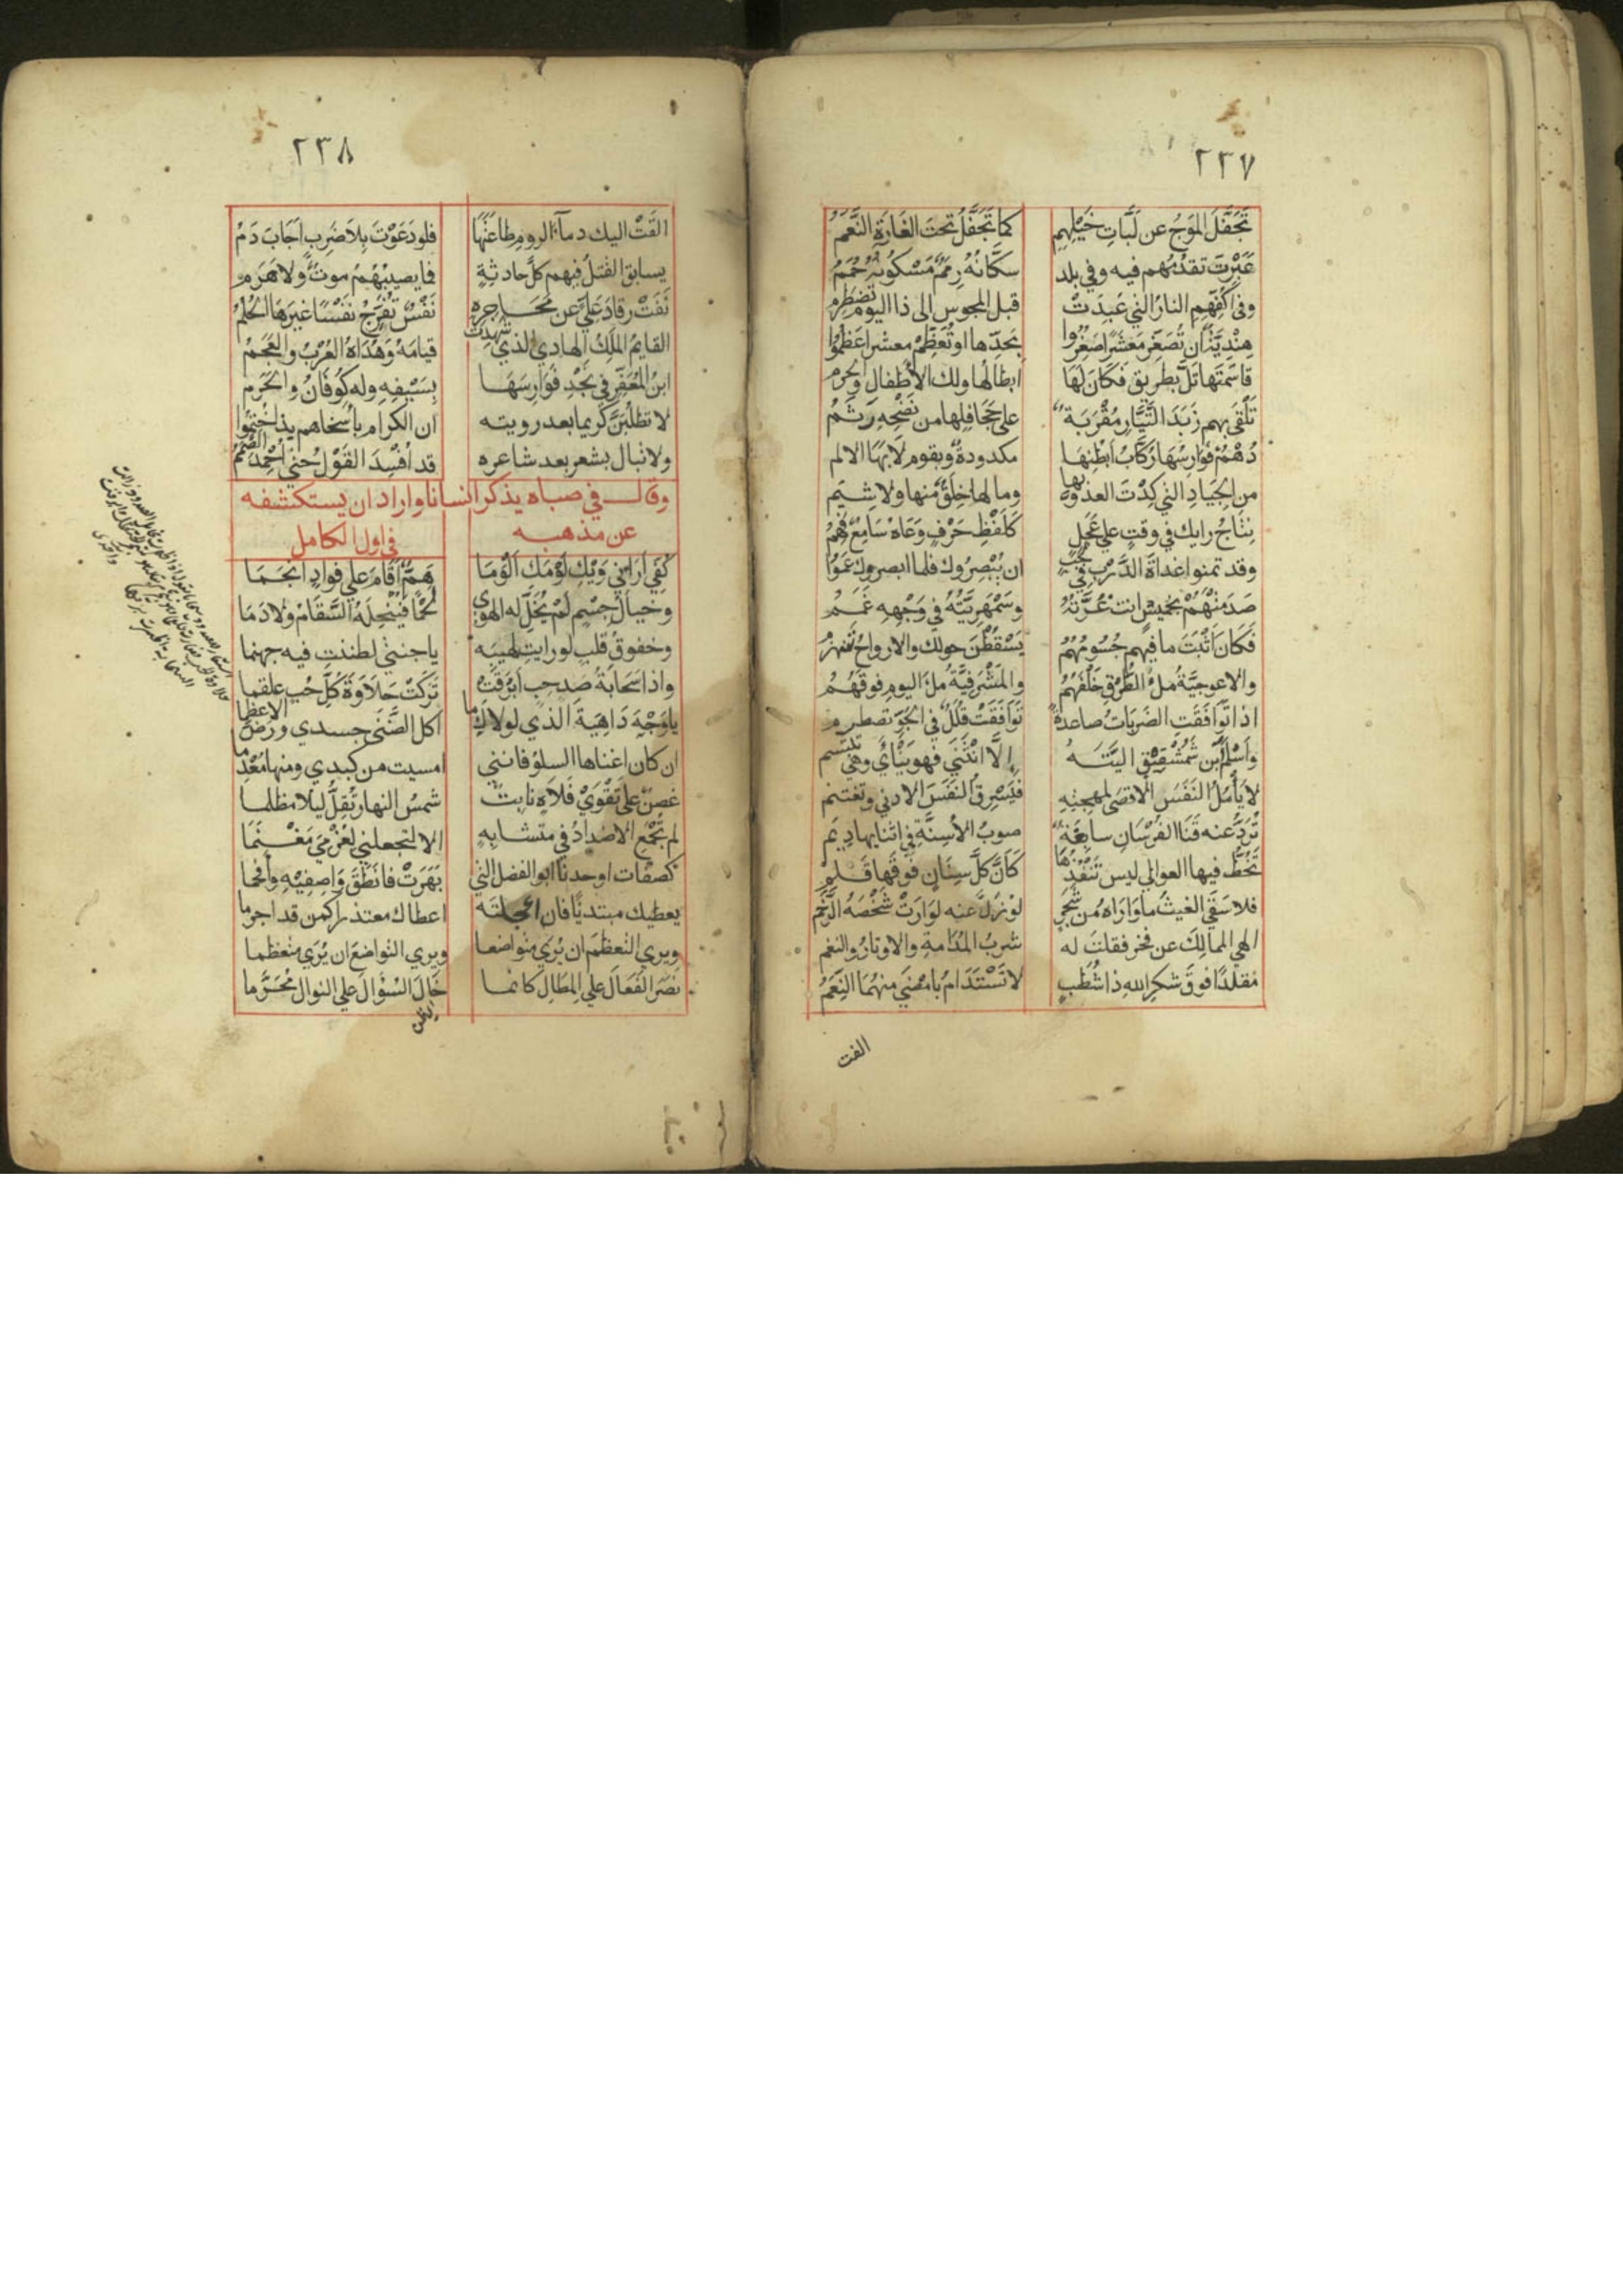 ٢٣٧
تَجَفَّلَ المَوجُ عن لَبَّاتِ خَيْلِهِمِ كما تَجَفَّلُ تحتَ الغَارَةِ النَّعَمُ
عَبَرْتَ تقدُمُهم فيه وفي بلد سكَّانُهُ رِمَمٌ مَسْكُونُهُ حُمَمُ
وفي أكُفِّهِم النارُ التي عُبِدَتْ قبل المجوس الى ذا اليوم تضطرم
هِنْدِيَّةٌ ان تُصَغِّر مَعشَرًا صَغُرُوا بحَدِّها او تُعَظِّمْ معشرا عَظُمُوا
قاسَمْتَها تَلَّ بِطريقٍ فكَانَ لَهَا ابطالُها ولك الأطفال والحرم
تَلْقَى بهم زَبَدَ التَّيَّارِ مُقْرَبَةٌ على جَحَافِلِها من نَضْحِهِ رَثَمُ
دُهْمٌ فوارِسُهَا رُكَّابُ ابْطُنِهَا مكدودةٌ وبقوم لَا بِهَا الالم
من الجِيَادِ التي كِدْتَ العدوّ بها وما لها خِلَقٌ منها ولا شِيَم
نِتَاجُ رايك في وقتٍ على عَجَلٍ كَلَفْظِ حَرْفٍ وَعَاهُ سَامِعٌ فَهِمُ
وقد تمنوا غداةَ الدَّرْبِ في لَجَبٍ ان يُبْصِرُوك فلما ابصروك عَمُوا
صَدَمْتَهُمْ بخَميسٍ انتَ غُرَّتُهُ وسَمْهَرِيَّتُهُ في وَجْهِهِ غَمَمُ
فكَانَ اثْبَتَ ما فيهم جُسُومُهُمُ يَسْقُطْنَ حولك والارواحُ تنهزمُ
والاعوجيَّةُ مِلْءُ الطُرْقِ خَلْفَهُمُ والمَشْرَفيَّةُ مِلْءُ اليوم فوقَهُمُ
اذا تَوَافَقَتِ الضَرَبَاتُ صاعدةً تَوَافَقَتْ قُلَلٌ في الجَوّ تصطدم
وَأسْلَمَ ابْن شُمُشْقِيْقٍ اليَّتَهُ إلَّا انْثَنَى فهو يَنْأَى وهي تبتسم
لا يَأْمُلُ النَفَسَ الاقصَى لمهجتِهِ فيَسْرِقُ النَفَسَ الادنى ويغتنم
تَرُدُّ عنه قَنَا الفُرْسَانِ سابغَةٌ صوبُ الأسِنَّةِ في اثنايها دِيَم
تَخُطُّ فيها العوالي ليس تَنْفُذُهَا كَأنَّ كلَّ سِنَانٍ فوقَها قَلَم
فلا سَقَى الغيثُ ما وَارَاهُ من شَجَرٍ لو زلَّ عنه لوَارَتْ شَخْصَهُ الرَّخَم
الهى الممالِكَ عن فخر قفلتَ له شربُ المُدَامةِ والاوتارُ والنغم
مُقلدًا فوقَ شكرِ اللهِ ذا شُطُبٍ لا تُسْتَدَامُ بامْضَى منهُمَا النِّعَمُ
القت
٢٣٨
القَتْ اليك دمآءُ الروم طاعَتَهَا فلو دَعَوْتَ بِلاَ ضَرْبٍ اَجَابَ دَمُ
يسابق القتلُ فيهم كلَّ حادثةٍ فما يصيبُهُمُ موتٌ ولا هَرَم
نَفَتْ رقادَ عَلَيٍّ عن مَحَاجِرِهِ نَفْسٌ تُفَرِّجُ نَفْسًا غيرَهَا الحُلُمُ
القايمُ المَلِكُ الهادي الذي شهِدَتْ قيامَهُ وَهُدَاهُ العُرْبُ والعَجَمُ
ابنُ المُعَفِّرِ في نَجْدٍ فَوَارِسَهَا بِسَيْفِهِ وله كُوفَانُ والحَرَم
لا تطلُبَنَّ كريما بعد رويته ان الكرام باسخاهم يدا ختموا
ولا تبال بشعر بعد شاعره قد اُفْسِدَ القَوْلُ حتى اُحْمِدَ الصَّمَمُ
وقال في صباه يذكر انسانا واراد ان يستكشفه
عن مذهبه في اول الكامل
كُفِّي اَرَاني وَيْكِ لَوْمَكِ اَلْوَمَا هَمٌّ اَقَامَ على فوادٍ انجَمَا
وخيالُ جِسْمٍ لَمْ يُخَلِّ له الهوى لَحْمًا فَيُنْحِلَهُ السَّقَامُ ولا دَمَا
وخفوقُ قلبٍ لو رايتِ لهيبَه يا جنتي لظننتِ فيه جهنما
واذا سَحَابَةُ صَدِّ حِبٍ اَبْرَقَتْ تَرَكَتْ حَلاَوَةَ كُلِّ حُبٍ علقما
يا وَجْهَ دَاهِيَةَ الذي لولاكِ ما اكل الضَّنَى جسدي ورضَّ الاعظما
ان كان اغناها السلوُ فانني امسيت من كبدي ومنها مُعْدِما
غصنٌ على نَقْوَيْ فَلاَةٍ نابتٌ شمسُ النهار تُقِلُّ ليلا مظلما
لم تُجْمَعِ الاضدادُ في متشابِهٍ الا لتجعلني لغُرْمِيَ مَغْنَمَا
كصفات اوحدنا ابو الفضل التي بَهَرَتْ فانْطَقَ وَاصِفِيْهِ وافحما
يعطيك مبتديًا فان اعجلتَه اعطاك معتذرا كمن قد اجرما
ويرى التعظمَ ان يُرَى متواضعا ويرى التواضعَ ان يُرَى متعظما
نصَرَ الفَعَالَ على المِطَالِ كانما خَالَ السُّؤالَ على النوال مُحَرَّما